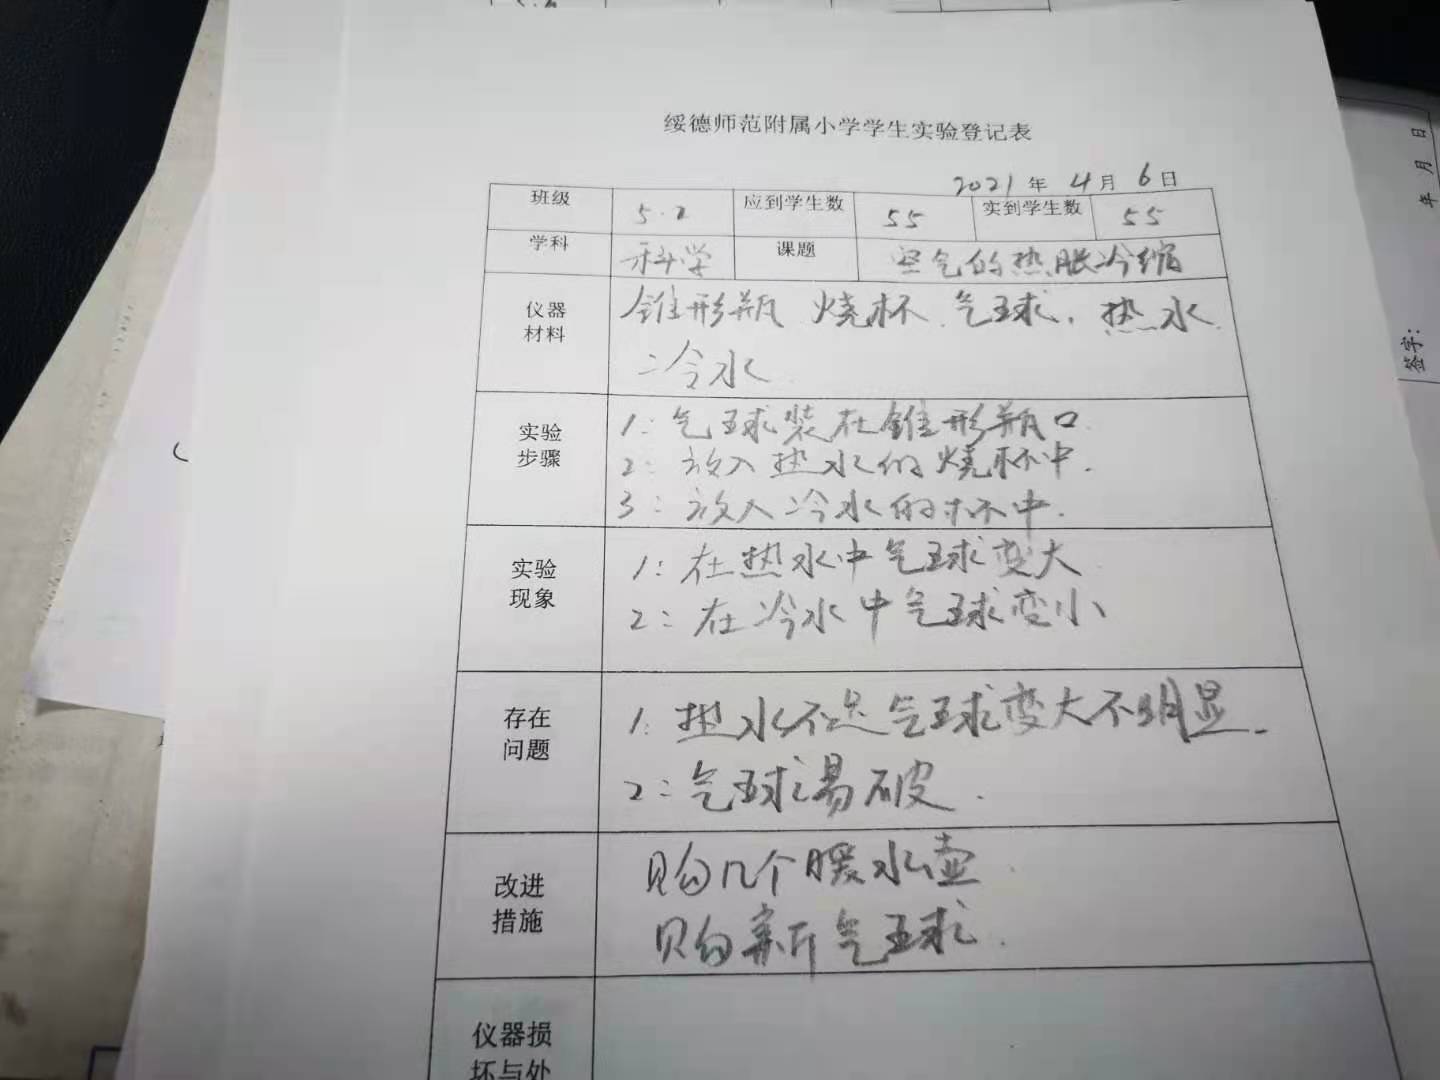 绥德师范附属小学学生实验登记表
2021年 4月 6日
班级 5.2 应到学生数 55 实到学生数 55
学科 科学 课题 空气的热胀冷缩
仪器材料
锥形瓶 烧杯、气球、热水
冷水
实验步骤
1: 气球装在锥形瓶口
2: 放入热水的烧杯中.
3: 放入冷水的杯中.
实验现象
1: 在热水中气球变大
2: 在冷水中气球变小
存在问题
1: 热水不足气球变大不明显.
2: 气球易破.
改进措施
购几个暖水壶
购新气球.
仪器损
坏与处
年 月 日
签字: